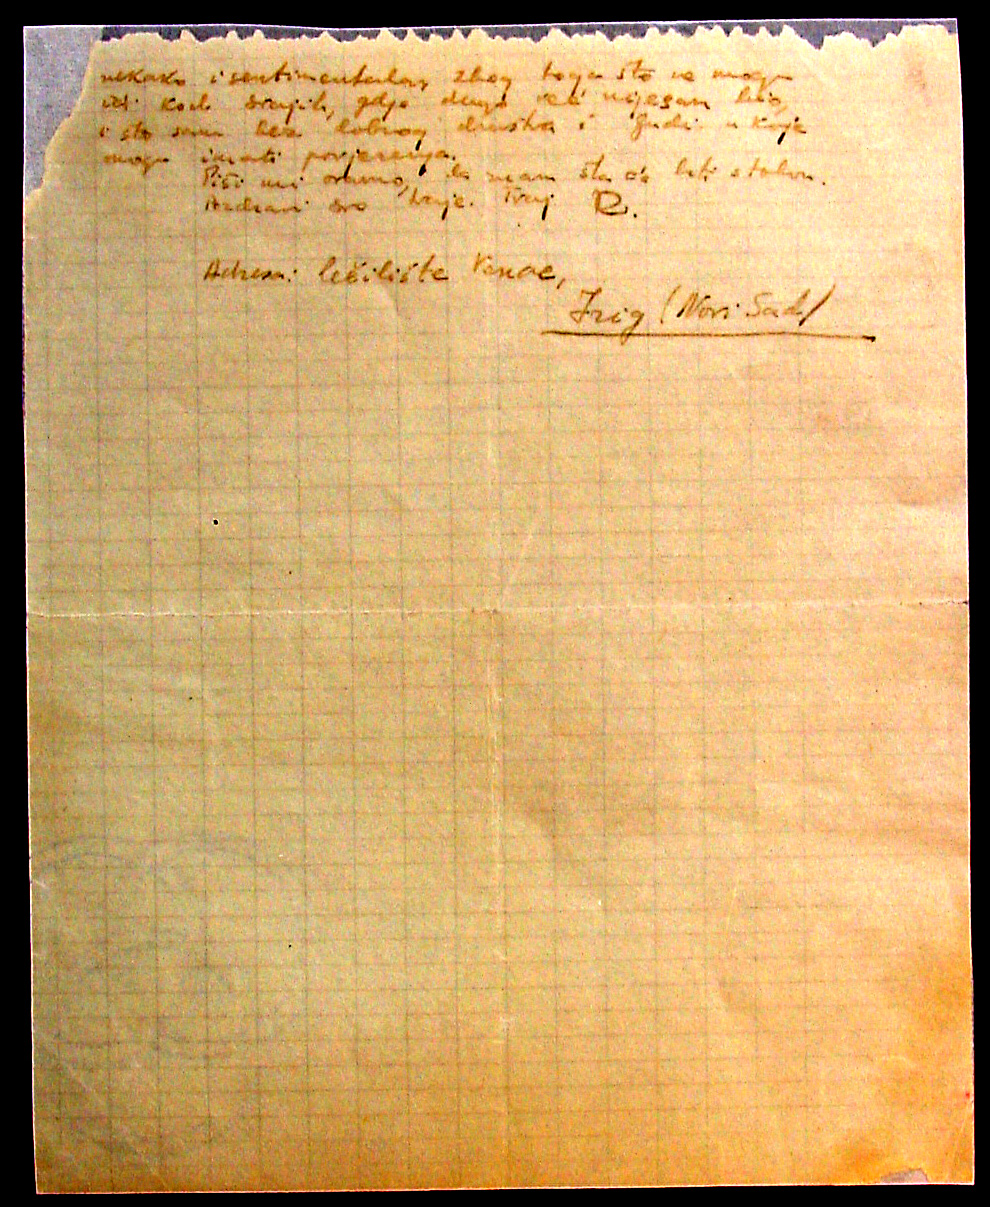 nekako i sentimentalan, zbog toga što ne mogu
ići kod svojih, gdje dugo već nijesam bio,
i što sam bez dobrog društva i ljudi u koje
mogu imati povjerenja.
Piši mi odmah, da znam šta će biti s tobom.
Pozdravi sve tvoje. Tvoj R.
Adresa: lečilište Venac,
Irig (Novi Sad)